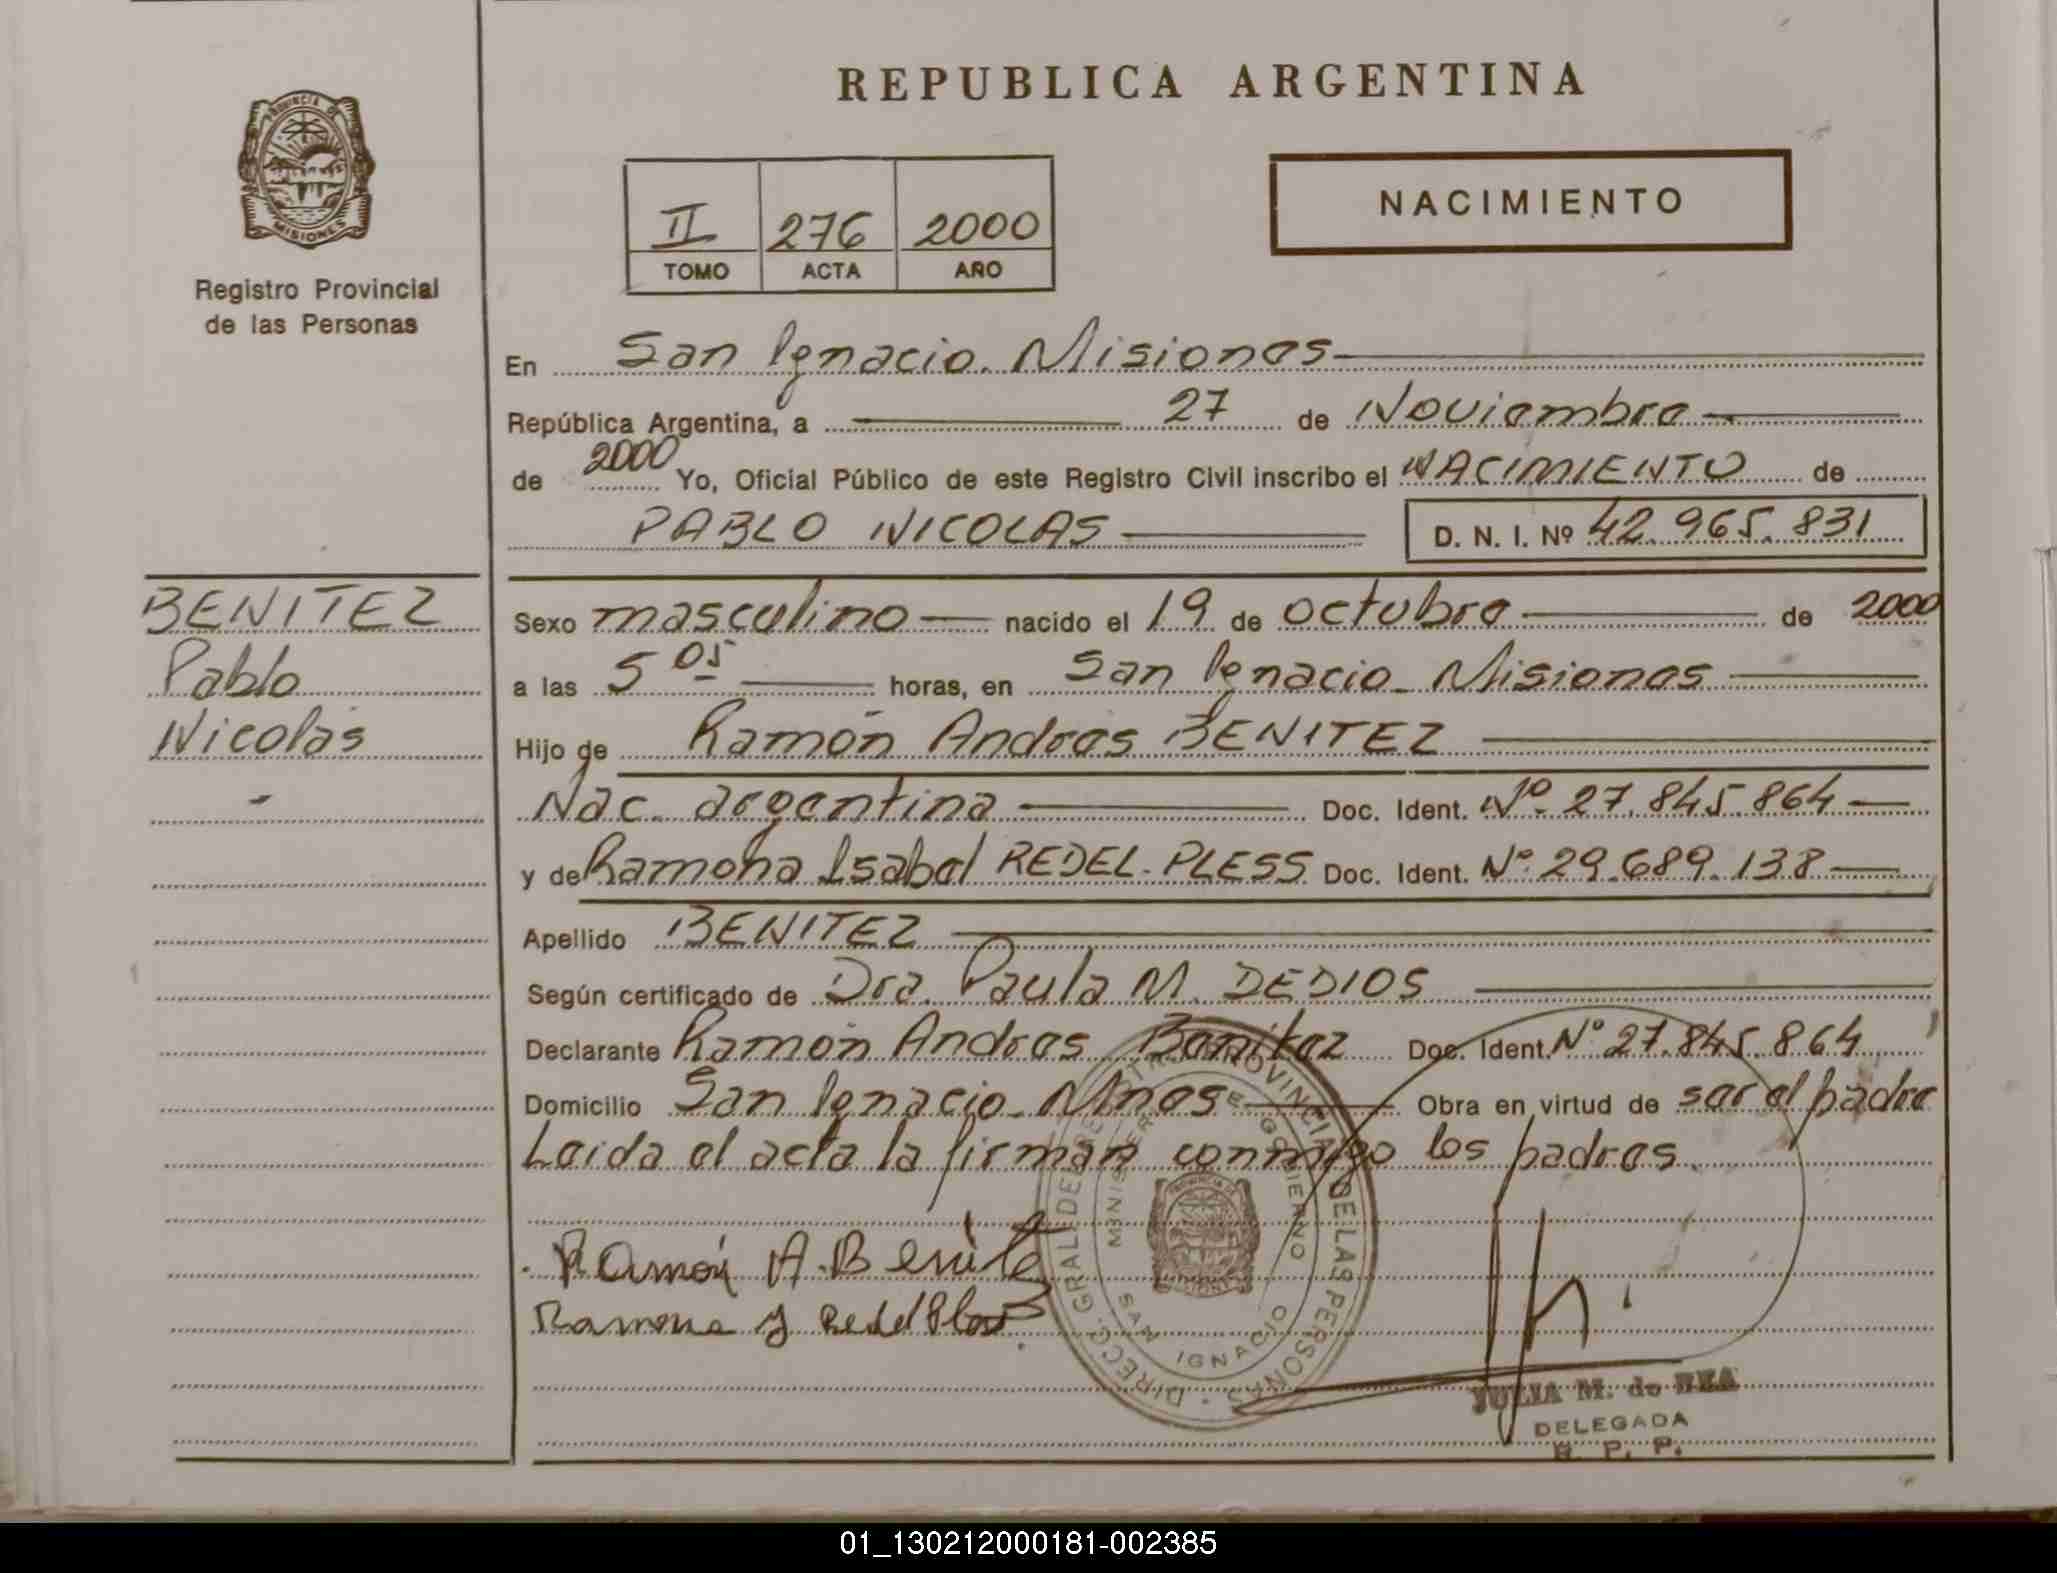 REPUBLICA ARGENTINA
PROVINCIA DE
MISIONES
Registro Provincial
de las Personas
NACIMIENTO
II 276 2000
TOMO ACTA AÑO
En San Ignacio. Misiones
República Argentina, a 27 de Noviembre
de 2000 Yo, Oficial Público de este Registro Civil inscribo el NACIMIENTO de
PABLO NICOLAS D. N. I. Nº 42.965.831
BENITEZ
Pablo
Nicolás
Sexo masculino nacido el 19 de octubre de 2000
a las 5 05 horas, en San Ignacio - Misiones
Hijo de Ramón Andres BENITEZ
Nac. argentina Doc. Ident. Nº 27.845.864
y de Ramona Isabel REDEL-PLESS Doc. Ident. Nº 29.689.138
Apellido BENITEZ
Según certificado de Dra. Paula M. DEDIOS
Declarante Ramón Andres Benítez Doc. Ident. Nº 27.845.864
Domicilio San Ignacio - Mnes Obra en virtud de ser el padre
Leida el acta la firman conmigo los padres.
Ramón A. Benitez
Ramona Y Redel Ples
DIRECC. GRAL. DEL REGISTRO PROVINCIAL DE LAS PERSONAS
MINISTERIO DE GOBIERNO
SAN IGNACIO
JULIA M. de
DELEGADA
R. P. P.
01_130212000181-002385